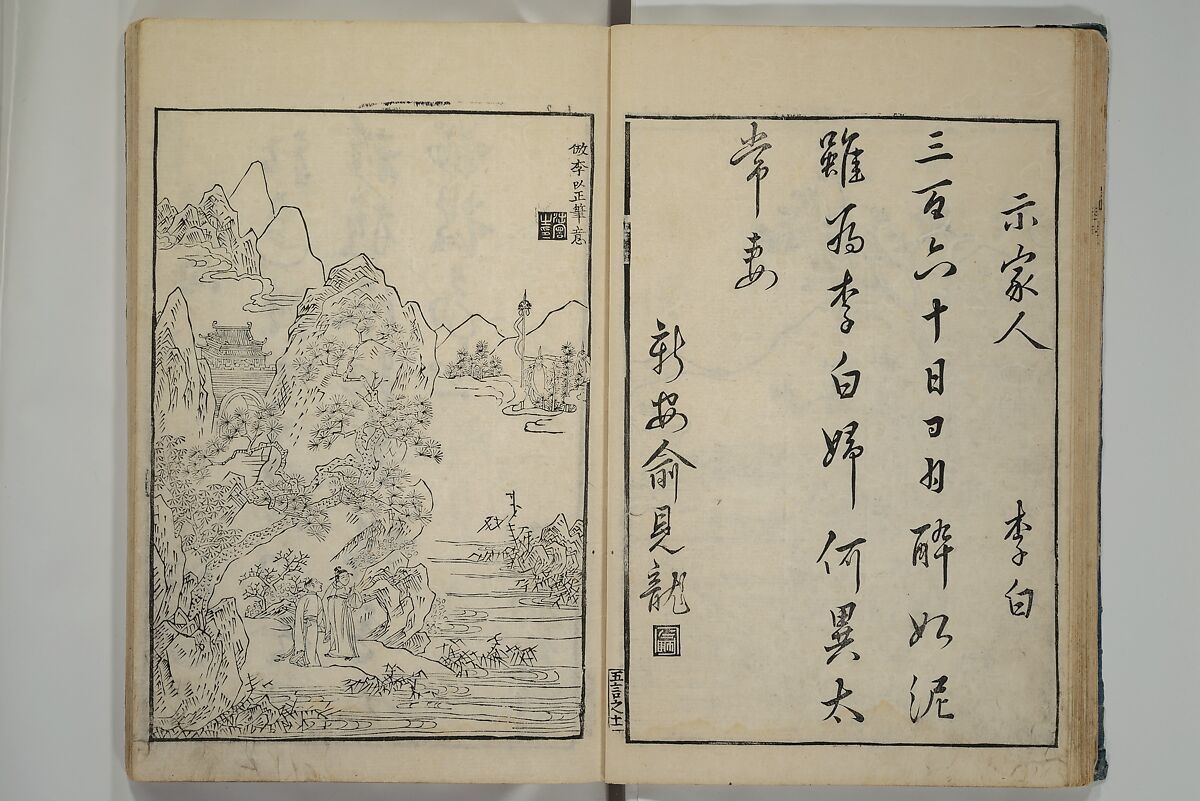 示家人　李白
三百六十日日日醉如泥
雖為李白婦何異太
常妻
新安俞見龍
五言之十一
倣李以正筆意